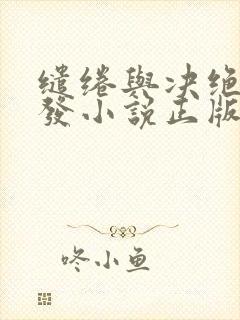 缱绻與决绝
發小說正版
咚小鱼